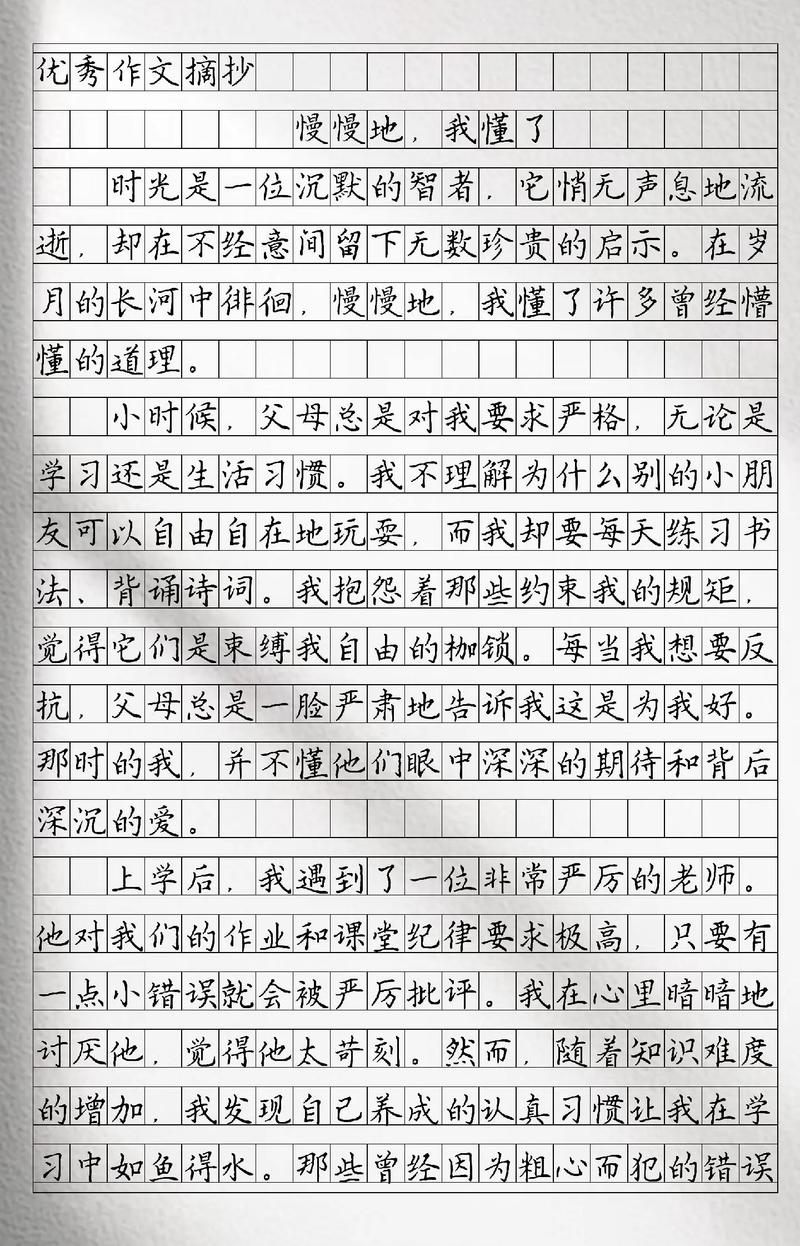 优秀作文摘抄
慢慢地，我懂了
时光是一位沉默的智者，它悄无声息地流
逝，却在不经意间留下无数珍贵的启示。在岁
月的长河中徘徊，慢慢地，我懂了许多曾经懵
懂的道理。
小时候，父母总是对我要求严格，无论是
学习还是生活习惯。我不理解为什么别的小朋
友可以自由自在地玩耍，而我却要每天练习书
法、背诵诗词。我抱怨着那些约束我的规矩，
觉得它们是束缚我自由的枷锁。每当我想要反
抗，父母总是一脸严肃地告诉我这是为我好。
那时的我，并不懂他们眼中深深的期待和背后
深沉的爱。
上学后，我遇到了一位非常严厉的老师。
他对我们的作业和课堂纪律要求极高，只要有
一点小错误就会被严厉批评。我在心里暗暗地
讨厌他，觉得他太苛刻。然而，随着知识难度
的增加，我发现自己养成的认真习惯让我在学
习中如鱼得水。那些曾经因为粗心而犯的错误